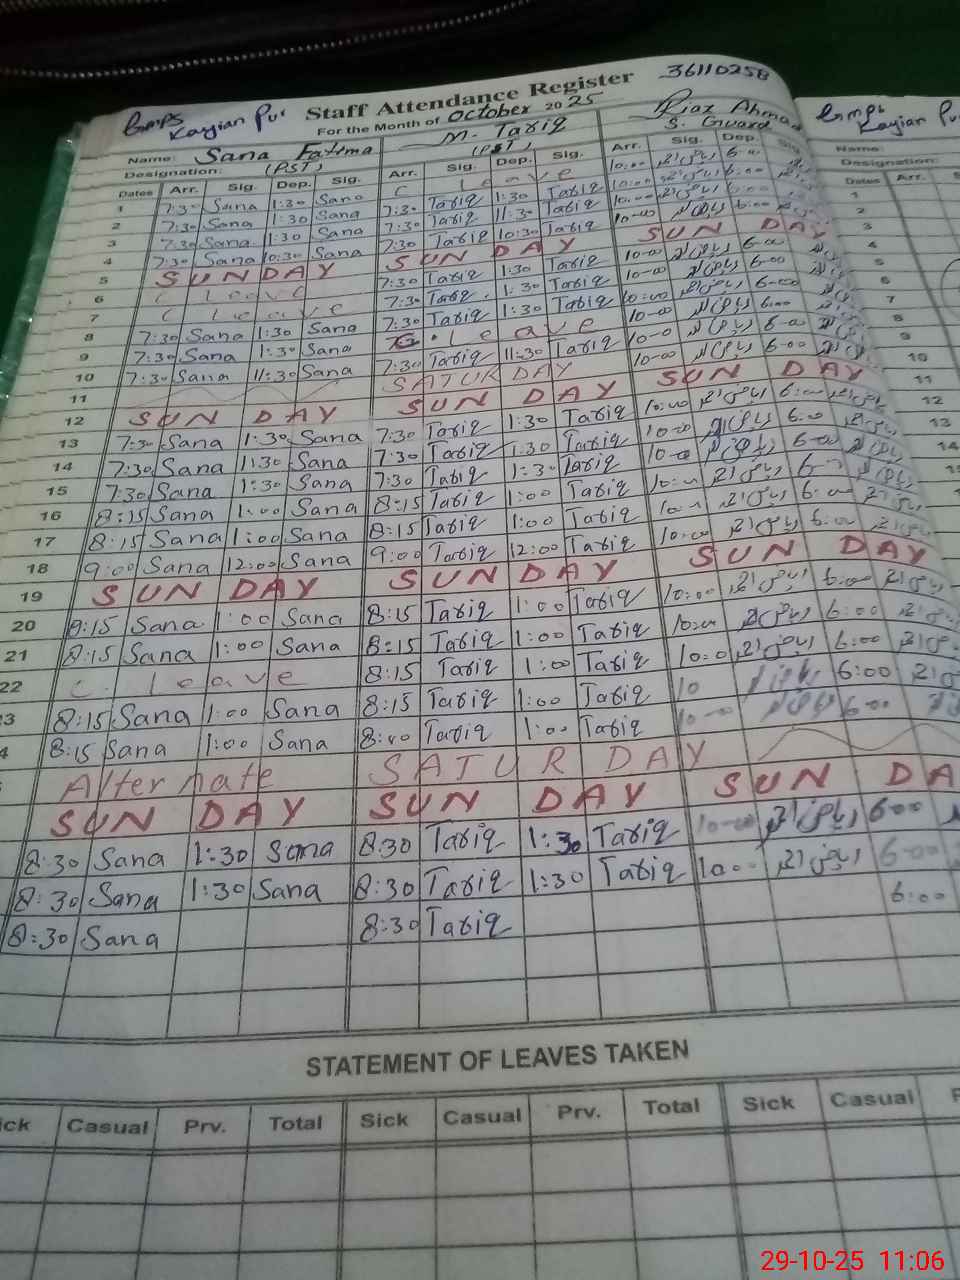 36110258
Gmps Kayian Pur Staff Attendance Register Gmps Kayian Pu
For the Month of October 2025
Name: Sana Fatima M. Tariq Riaz Ahmad Name:
Designation: (PST) (PST) S. Guard Designation:
Dates Arr. Sig. Dep. Sig. Arr. Sig. Dep. Sig. Arr. Sig. Dep. Sig. Dates Arr.
1 7:30 Sana 1:30 Sana C leave 10:00 ریاض احمد 6-00 1
2 7:30 Sana 1:30 Sana 7:30 Tariq 1:30 Tariq 10:00 ریاض احمد 6:00 2
3 7:30 Sana 1:30 Sana 7:30 Tariq 11:30 Tariq 10-00 ریاض احمد 6:00 3
4 7:30 Sana 10:30 Sana 7:30 Tariq 10:30 Tariq 10-00 ریاض احمد 6:00 4
5 SUNDAY SUNDAY SUNDAY 5
6 C leave 7:30 Tariq 1:30 Tariq 10-00 ریاض احمد 6-00 6
7 C leave 7:30 Tariq 1:30 Tariq 10-00 ریاض احمد 6-00 7
8 7:30 Sana 1:30 Sana 7:30 Tariq 1:30 Tariq 10:00 ریاض احمد 6-00 8
9 7:30 Sana 1:30 Sana C. leave 10-00 ریاض احمد 6-00 9
10 7:30 Sana 11:30 Sana 7:30 Tariq 11:30 Tariq 10-00 ریاض احمد 6-00 10
11 SATURDAY 11
12 SUNDAY SUNDAY SUNDAY 12
13 7:30 Sana 1:30 Sana 7:30 Tariq 1:30 Tariq 10:00 ریاض احمد 6:00 ریاض احمد 13
14 7:30 Sana 1:30 Sana 7:30 Tariq 1:30 Tariq 10-00 ریاض احمد 6:00 14
15 7:30 Sana 1:30 Sana 7:30 Tariq 1:30 Tariq 10-00 ریاض احمد 6-00
16 8:15 Sana 1:00 Sana 8:15 Tariq 1:00 Tariq 10:00 ریاض احمد 6-00
17 8:15 Sana 1:00 Sana 8:15 Tariq 1:00 Tariq ریاض احمد 6:00
18 9:00 Sana 12:00 Sana 9:00 Tariq 12:00 Tariq 10:00 ریاض احمد 6:00
19 SUNDAY SUNDAY SUNDAY
20 8:15 Sana 1:00 Sana 8:15 Tariq 1:00 Tariq 10:00 ریاض احمد 6:00
21 8:15 Sana 1:00 Sana 8:15 Tariq 1:00 Tariq 10:00 ریاض احمد 6:00
22 C. leave 8:15 Tariq 1:00 Tariq 10:0 ریاض احمد 6:00
3 8:15 Sana 1:00 Sana 8:15 Tariq 1:00 Tariq 10 6:00
4 8:15 Sana 1:00 Sana 8:40 Tariq 1:00 Tariq 10-00 6:00
Alternate SATURDAY
SUNDAY SUNDAY SUN DA
8:30 Sana 1:30 Sana 8:30 Tariq 1:30 Tariq 10-00 ریاض احمد 6:00
8:30 Sana 1:30 Sana 8:30 Tariq 1:30 Tariq 10:00 ریاض احمد 6-00
8:30 Sana 8:30 Tariq 6:00
STATEMENT OF LEAVES TAKEN
ick Casual Prv. Total Sick Casual Prv. Total Sick Casual P
29-10-25 11:06